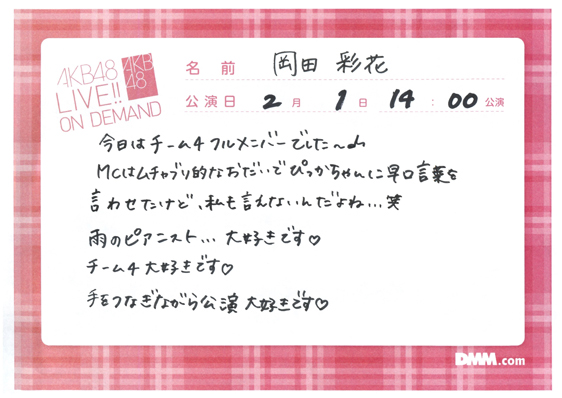 AKB48
LIVE!!
ON DEMAND
AKB
48
名前 岡田 彩花
公演日 2月 1日 14:00公演
今日はチーム4フルメンバーでした〜♪
MCはムチャブリ的なおだいでぴっかちゃんに早口言葉を
言わせたけど、私も言えないんだよね…笑
雨のピアニスト… 大好きです♡
チーム4大好きです♡
手をつなぎながら公演大好きです♡
DMM.com